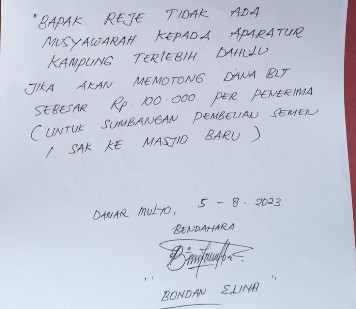 "BAPAK REJE TIDAK ADA
MUSYAWARAH KEPADA APARATUR
KAMPUNG TERLEBIH DAHULU
JIKA AKAN MEMOTONG DANA BLT
SEBESAR Rp 100.000 PER PENERIMA
(UNTUK SUMBANGAN PEMBELIAN SEMEN
1 SAK KE MASJID BARU)
DANAR MULYO, 5 - 8 - 2023
BENDAHARA
" BONDAN ELINA "